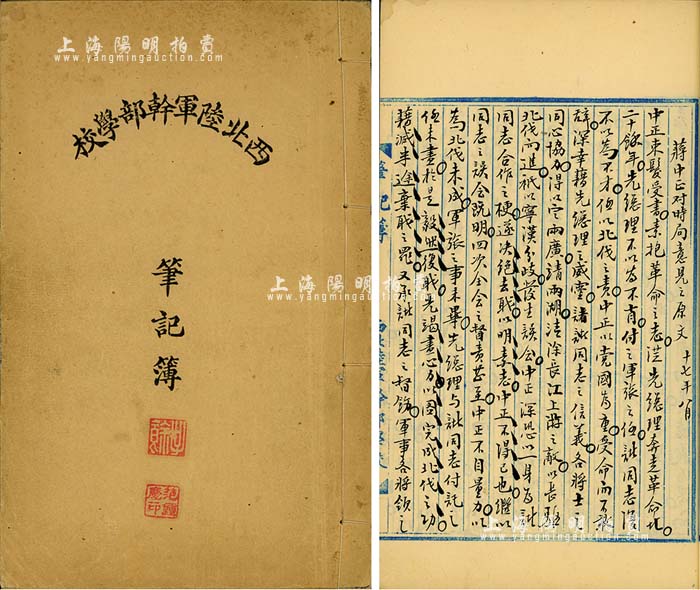 上海陽明拍賣
www.yangmingauction.com
西北陸軍幹部學校
筆記簿
上海陽明拍賣
www.yangmingauction.com
上海陽明拍賣
www.yangmingauction.com
蔣中正对時局意見之原文 十七年八月
中正束髮受書素抱革命之志從先總理奔走革命比
二十餘年先總理不以為不肖付之軍旅之任諸同志復
不以為不才伍以北伐之責中正以党國為重受命而不敢
辞深幸藉先總理之威灵諸同志之信義各將士之
同心協力得以定兩廣清兩湖清除長江上游之敵以長驅
北伐而進秖以寧漢分歧發生誤会中正深恐以一身為諸
同志合作之梗遂决絕去職以明素志中正不得已也繼以
同志之誤会既明四次全会之督責甚至中正不自量力以
為北伐未成軍旅之事未畢先總理与諸同志付託之
任未盡於是毅然復職先竭盡心力以图完成北伐之功
藉减半途棄職之罪又承諸同志之督飭軍事各將領之
筆記簿